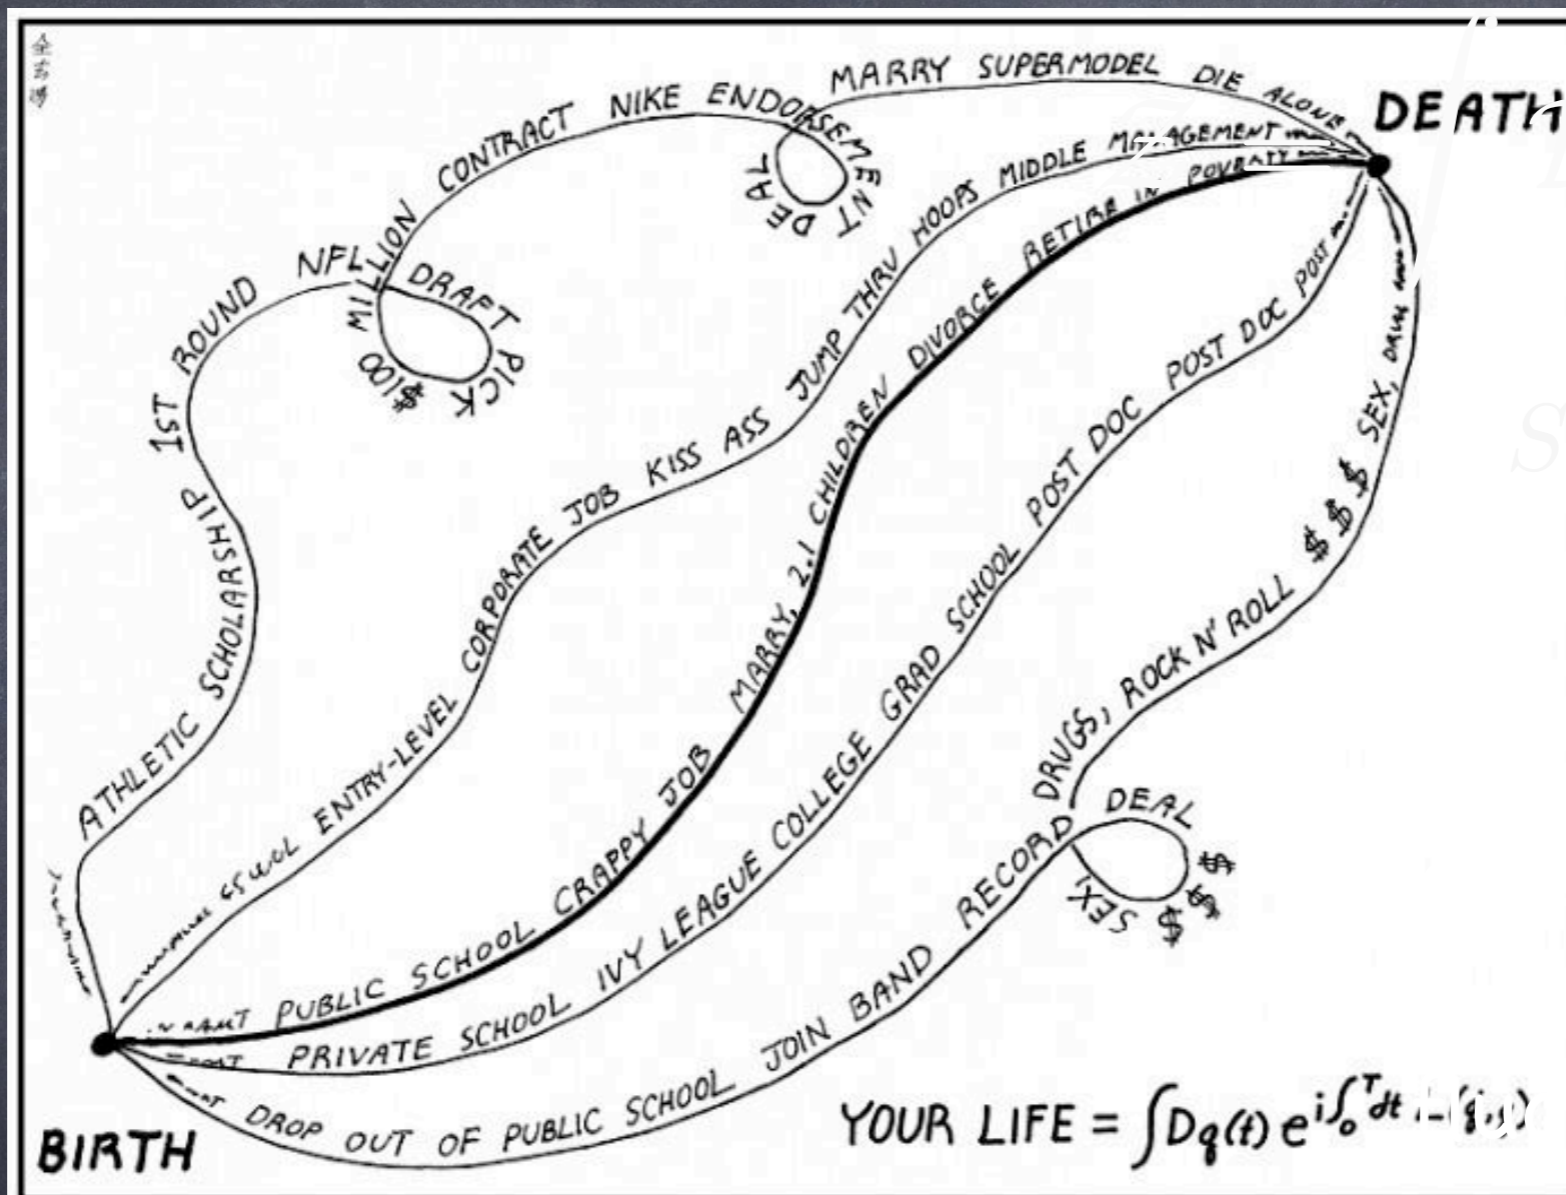 DEATH
1ST ROUND NFL DRAFT PICK $100 MILLION CONTRACT NIKE ENDORSEMENT DEAL MARRY SUPERMODEL DIE ALONE
ATHLETIC SCHOLARSHIP
ENTRY-LEVEL CORPORATE JOB KISS ASS JUMP THRU HOOPS MIDDLE MANAGEMENT
PUBLIC SCHOOL CRAPPY JOB MARRY, 2.1 CHILDREN DIVORCE RETIRE IN POVERTY
PRIVATE SCHOOL IVY LEAGUE COLLEGE GRAD SCHOOL POST DOC POST DOC POST
DROP OUT OF PUBLIC SCHOOL JOIN BAND RECORD DEAL $ $ $ SEX, DRUGS, ROCK N' ROLL $ $ $ SEX,
BIRTH
YOUR LIFE = ∫Dq(t) e^{i∫₀ᵀdt